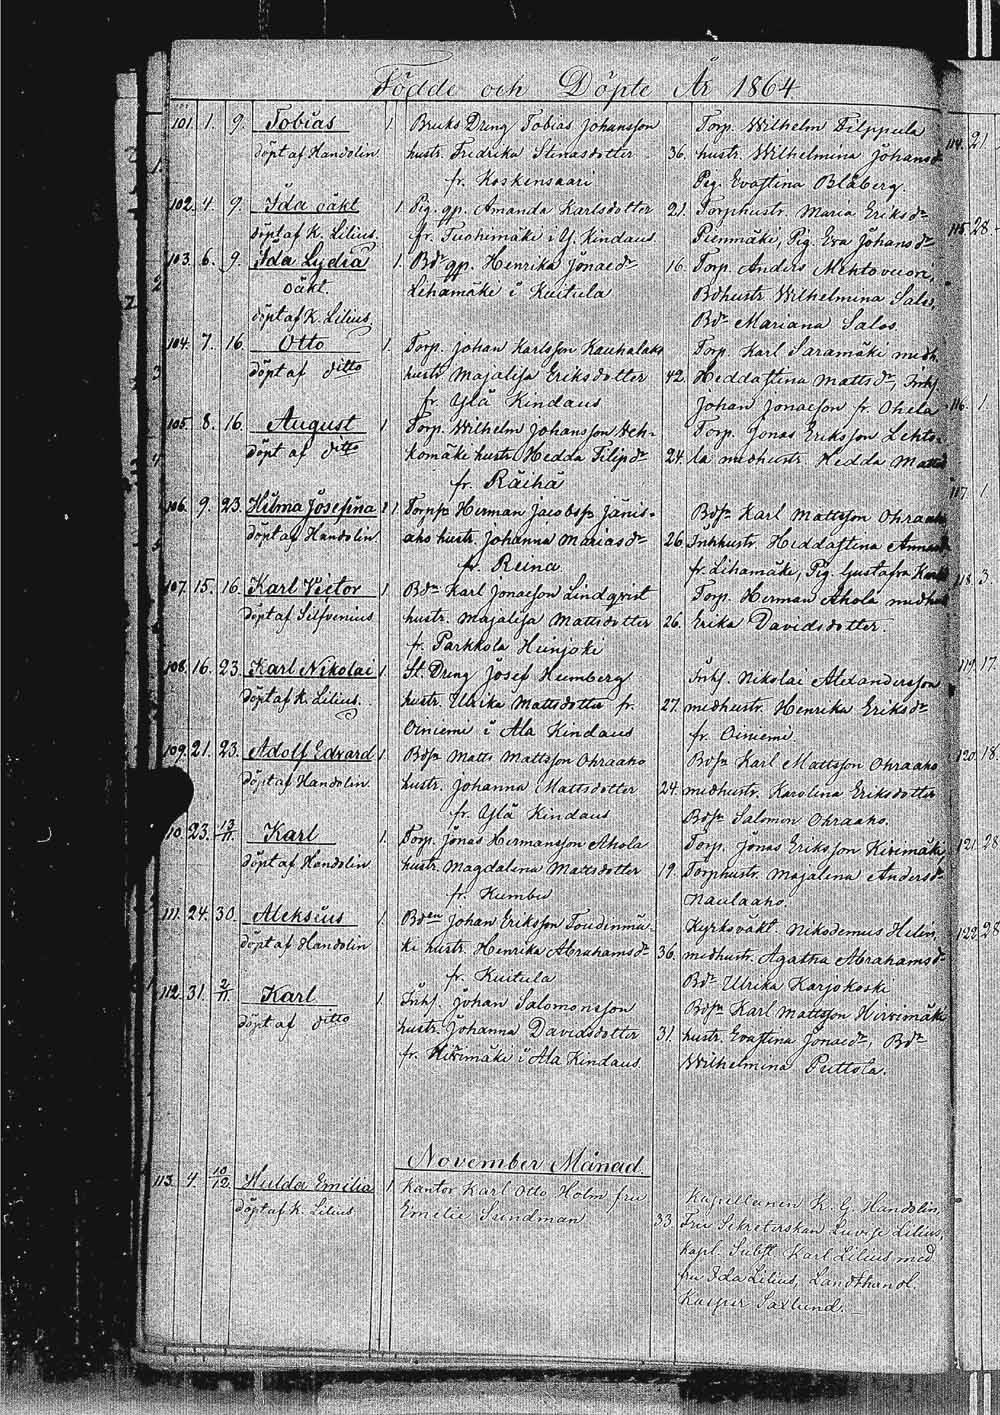 Födde och Döpte År 1864
101. 1. 9. Tobias 1. Bruks Dräng Tobias Johansson Torp. Wilhelm Filppula
döpt af Handolin hustr. Fredrika Stinasdotter 36. hustr. Wilhelmina Johansdr
fr. Koskensaari Pig. Evastina Blåberg.
102. 4. 9. Ida oäkt 1. Pig. gp. Amanda Karlsdotter 21. Torphustr. Maria Eriksdr
döpt af K. Lilius. fr. Tuohimäki i Y. Kindaus Pienmäki, Pig. Eva Johansdr
103. 6. 9. Ida Lydia 1. Bdr gp. Henrika Jonaedr 16. Torp. Anders Mehtovuori,
oäkt. Lihamäke i Kuitula Bdhustr. Wilhelmina Salo,
döpt af K. Lilius Bdr Mariana Salos
104. 7. 16. Otto 1. Torp. Johan Karlsson Kauhalaks Torp. Karl Saramäki medh.
döpt af ditto hustr. Majalisa Eriksdotter 42. Heddastina Mattsdr, Inhs
fr. Ylä Kindaus Johan Jonaesson fr. Ohela
105. 8. 16. August 1 Torp. Wilhelm Johansson Weh- Torp. Jonas Eriksson Lehto-
döpt af ditto komäke hustr. Hedda Filipdr 24. la medhustr. Hedda Matts
fr. Räihä
106. 9. 23. Hilma Josefina 1 Tornp. Herman Jacobss. Jänis- Bdsn Karl Mattsson Ohraaho
döpt af Handolin. aho hustr. Johanna Mariasdr 26. Inhhustr. Heddastina
fr. Reina fr. Lihamäke, Pig. Gustafva
107. 15. 16. Karl Victor 1. Bdn Karl Jonaesson Lindqvist Torp. Herman Ahola medhus
döpt af Selfvenius hustr. Majalisa Mattsdotter 26. Erika Davidsdotter.
fr. Parkkola Heinjoki
108. 16. 23. Karl Nikolai 1 St. Dräng Josef Humberg Inhs. Nikolai Alexandersson
döpt af K. Lilius. hustr. Ulrika Mattsdotter fr. 27. medhustr. Henrika Eriksdr
Oiniemi i Ala Kindaus fr. Oiniemi
109. 21. 23. Adolf Edvard 1. Bdsn Matts Mattsson Ohraaho Bdsn Karl Mattsson Ohraaho
döpt af Handolin. hustr. Johanna Mattsdotter 24. medhustr. Karolina Eriksdotter
fr. Ylä Kindaus Bdsn Salomon Ohraaho.
110. 23. 13/11. Karl 1. Torp. Jonas Hermansson Ahola Torp. Jonas Eriksson Kivimäki,
döpt af Handolin hustr. Magdalena Mattsdotter 19. Torphustr. Majalena Andersdr
fr. Kumbu Naulaaho.
111. 24. 30. Aleksius 1. Bden Johan Eriksson Toudinmä- Kyrkovakt. Nikodemus Helin,
döpt af Handolin ke hustr. Henrika Abrahamsdr 36. medhustr. Agatha Abrahamsdr
fr. Kuitula Bdr Ulrika Karjokoski
112. 31. 2/11. Karl 1. Inhs. Johan Salomonsson Bdsn Karl Mattsson Hirvimäke
döpt af ditto hustr. Johanna Davidsdotter 31. hustr. Evastina Jonaedr, Bdr
fr. Hirvimäke i Ala Kindaus Wilhelmina Puttola.
November Månad.
113. 4. 10/12. Hulda Emilia 1 Kantor Karl Otto Holm fru Kapellanen K. G. Handolin,
döpt af K. Lilius Emelie Sundman 33. Fru Sekreterskan Lovise Lilius,
Kapl. Subst. Karl Lilius med
fru Ida Lilius, Landthandl.
Kasper Saxlund.
114. 21
115. 28
116. 1.
117. 1
118. 3.
119. 17.
120. 18.
121. 28
122. 28